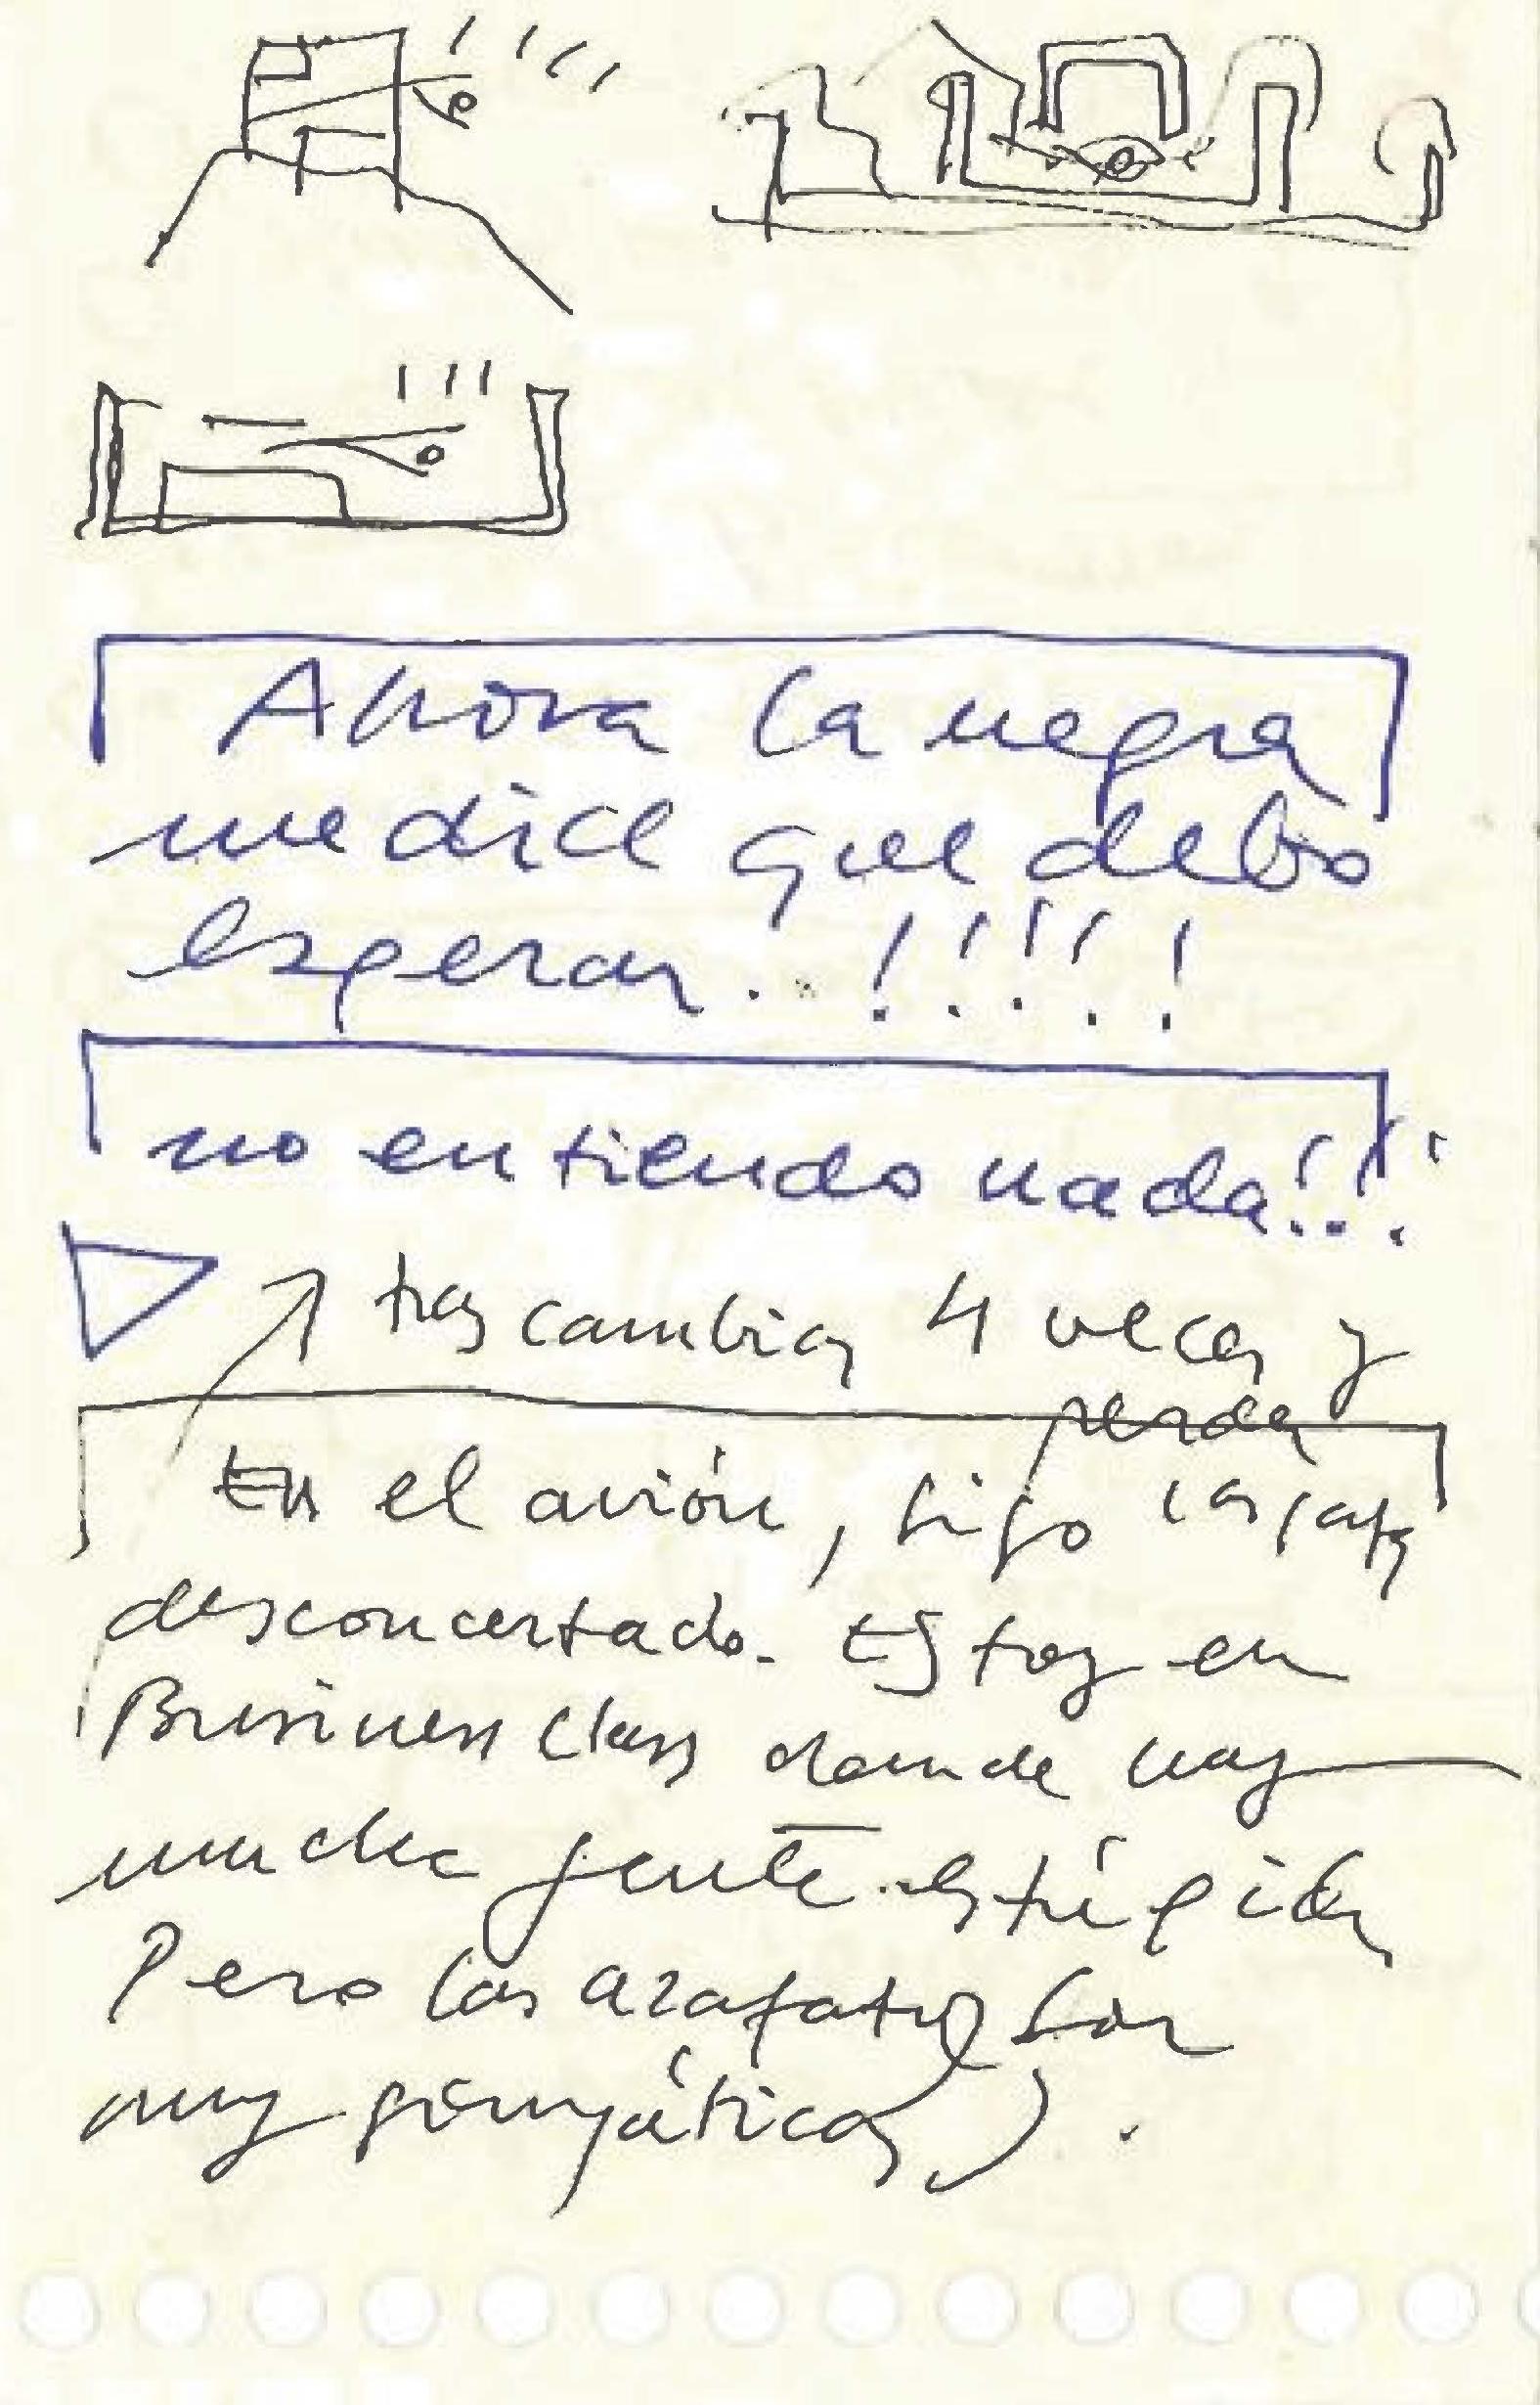 Ahora la negra
me dice que debo
esperar. . ! ! ! ! !
no entiendo nada!!!
tras cambiar 4 veces y
perder
las gafas
En el avión, sigo
desconcertado. Estoy en
Business Class donde hay
mucha gente estúpida
Pero las azafatas son
muy simpáticas).